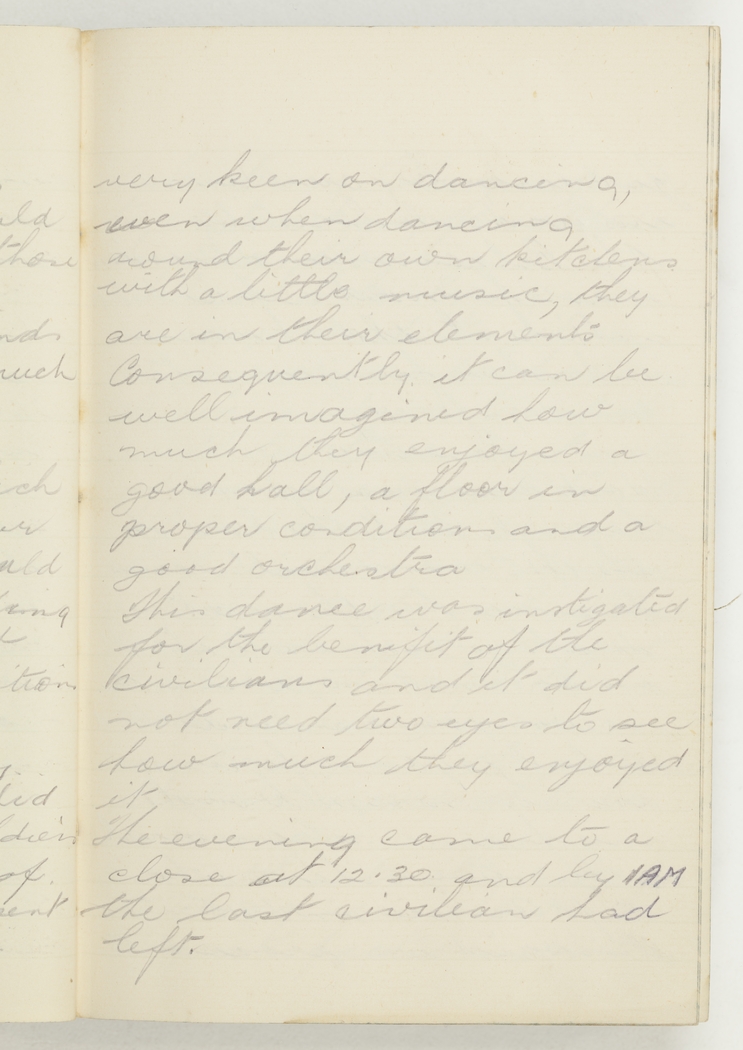 very keen on dancing,
even when dancing
around their own kitchens
with a little music, they
are in their elements
Consequently it can be
well imagined how
much they enjoyed a
good hall, a floor in
proper condition and a
good orchestra
This dance was instigated
for the benifit of the
civilians and it did
not need two eyes to see
how much they enjoyed
it
The evening came to a
close at 12.30 and by 1AM
the last civilian had
left.